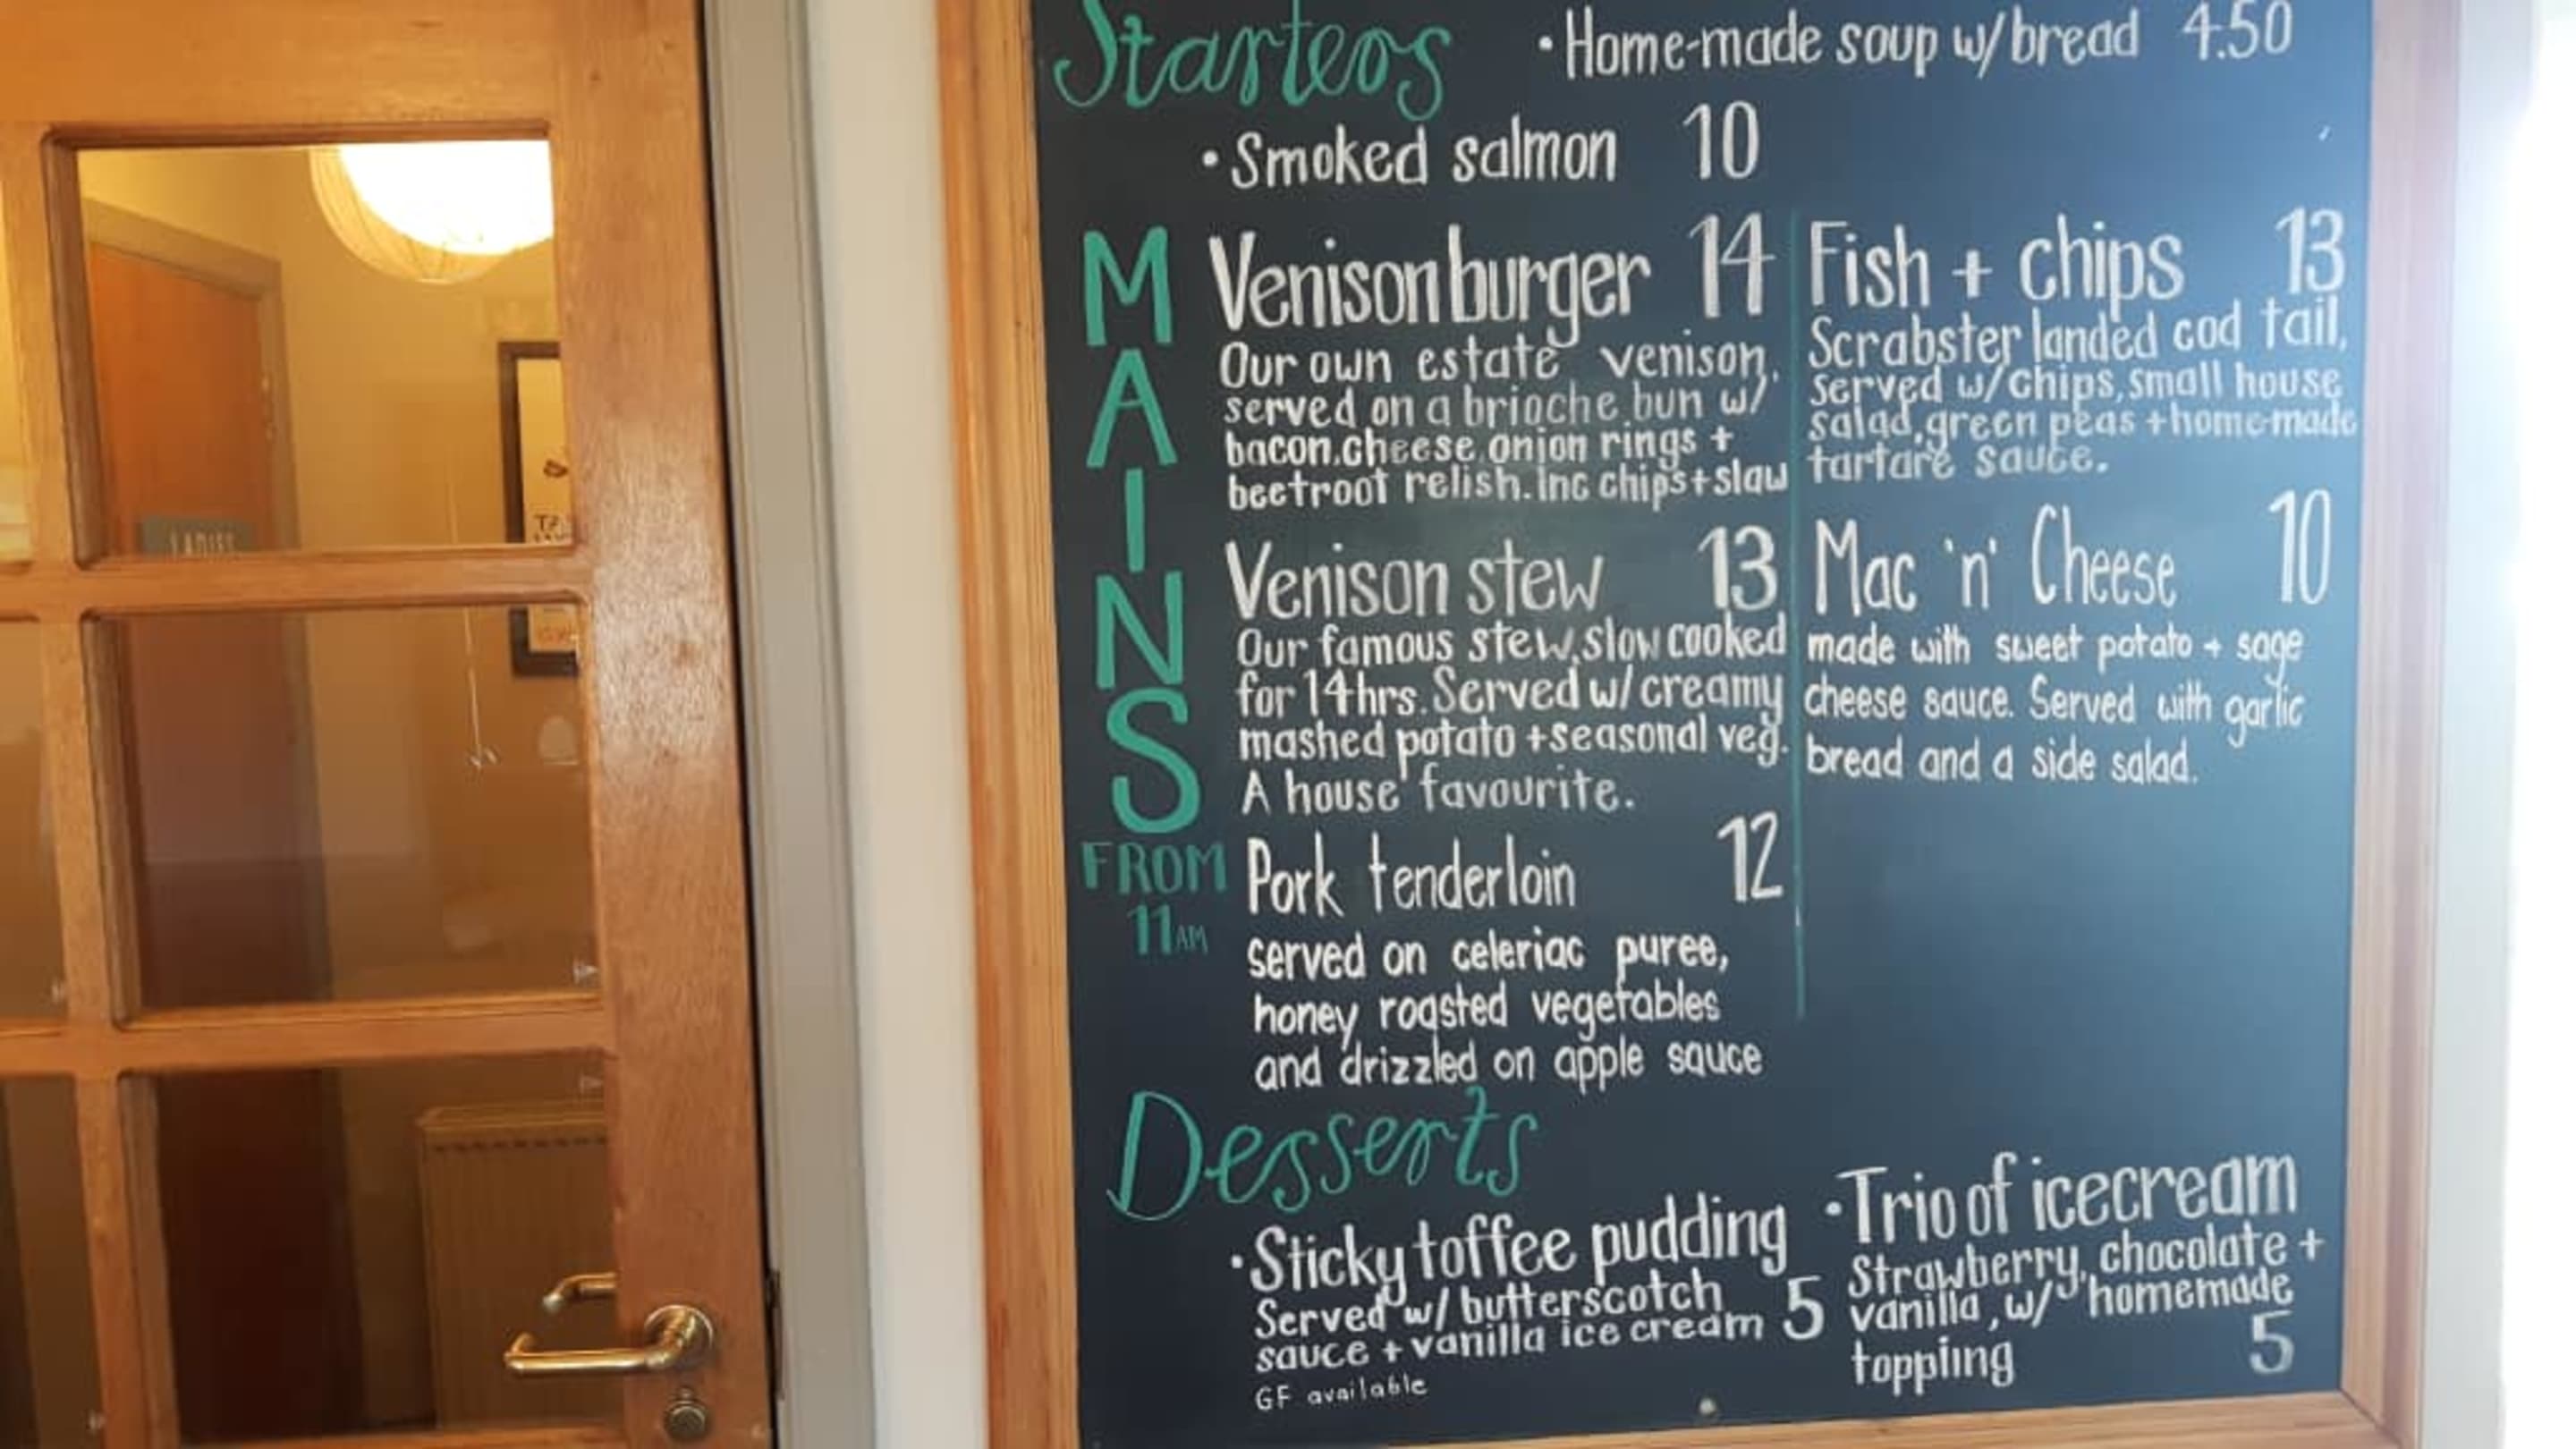 Starters
• Home-made soup w/bread 4.50
• Smoked salmon 10
MAINS
FROM
11AM
Venison burger 14
Our own estate venison,
served on a brioche bun w/
bacon, cheese, onion rings +
beetroot relish. Inc chips + slaw
Venison stew 13
Our famous stew, slow cooked
for 14hrs. Served w/ creamy
mashed potato + seasonal veg.
A house favourite.
Pork tenderloin 12
served on celeriac puree,
honey roasted vegetables
and drizzled on apple sauce
Fish + chips 13
Scrabster landed cod tail,
served w/chips, small house
salad, green peas + home-made
tartare sauce.
Mac 'n' Cheese 10
made with sweet potato + sage
cheese sauce. Served with garlic
bread and a side salad.
Desserts
• Sticky toffee pudding
Served w/ butterscotch
sauce + vanilla ice cream 5
GF available
• Trio of icecream
Strawberry, chocolate +
vanilla, w/ homemade
topping 5
LADIES